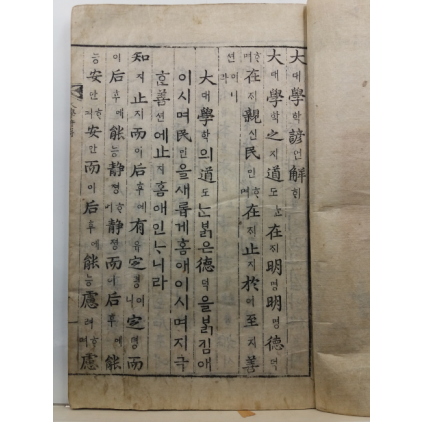 大대學학諺언解ᄒᆡ
大대學학之지道도ᄂᆞᆫ在ᄌᆡ明명明명德덕
ᄒᆞ며在ᄌᆡ親신民민ᄒᆞ며在ᄌᆡ止지於어至지善
션
大대學학의道도ᄂᆞᆫ붉은德덕을붉킴애
이시며民민을새롭게홈애이시며지극
ᄒᆞᆫ善션에止지홈애인ᄂᆞ니라
知지止지而이后후에有유定뎡이니定뎡而
이后후에能능静졍ᄒᆞ며静졍而이后후에能
능安안ᄒᆞ며安안而이后후에能능慮려ᄒᆞ며慮